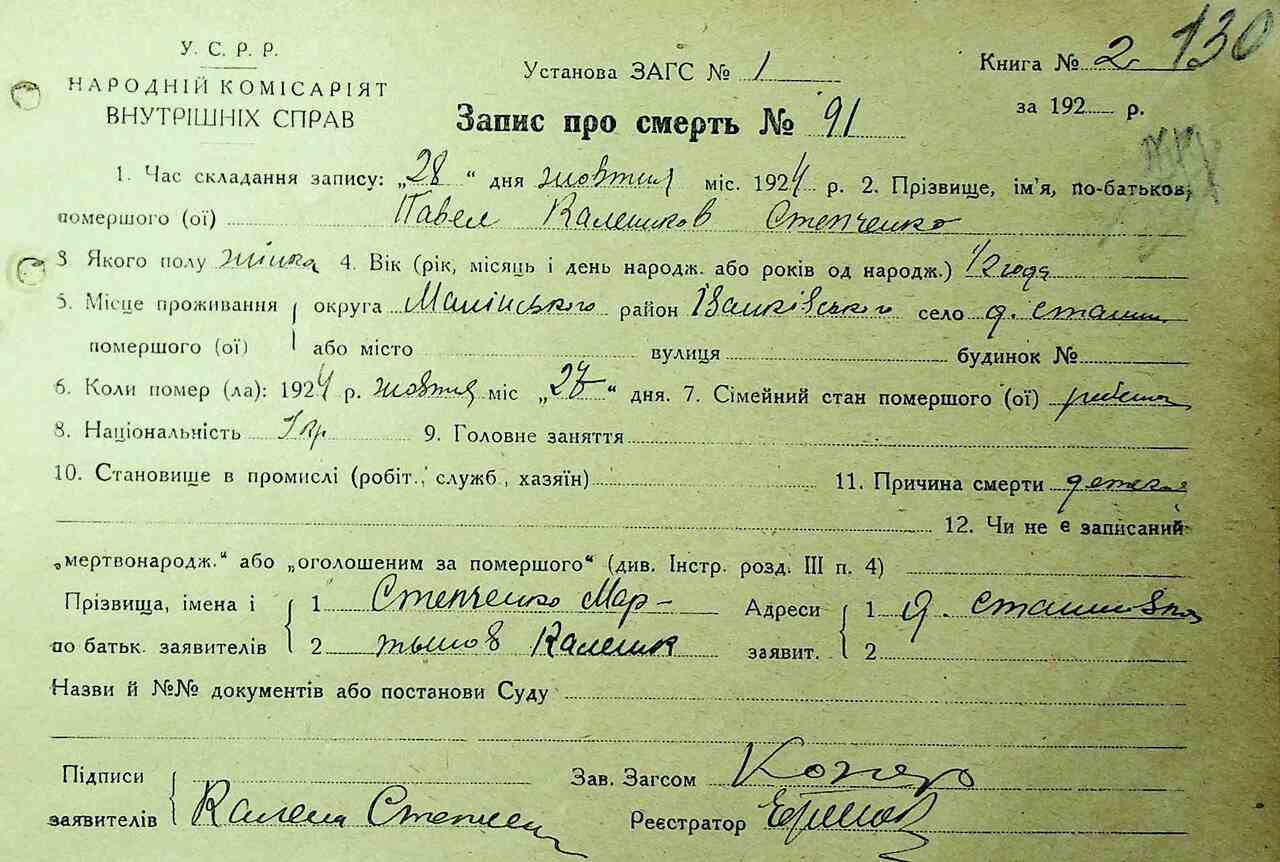 У. С. Р. Р.
НАРОДНІЙ КОМІСАРІЯТ
ВНУТРІШНІХ СПРАВ
Установа ЗАГС № 1
Книга № 2 130
за 192 р.
Запис про смерть № 91
1. Час складання запису: „28“ дня жовтня міс. 1924 р. 2. Прізвище, ім'я, по-батьков,
помершого (ої) Павел Калеников Степченко
3 Якого полу жінка 4. Вік (рік, місяць і день народж. або років од народж.) 1/2 года
5. Місце проживання округа Малінського район Іванківського село д.
помершого (ої) або місто вулиця будинок №
6. Коли помер (ла): 1924 р. жовтня міс „27“ дня. 7. Сімейний стан помершого (ої)
8. Національність Укр 9. Головне заняття
10. Становище в промислі (робіт., служб, хазяїн) 11. Причина смерти детская
12. Чи не є записаний
„мертвонародж.“ або „оголошеним за помершого“ (див. Інстр. розд. III п. 4)
Прізвища, імена і 1 Степченко Мар- Адреси 1 д.
по батьк. заявителів 2 тынов Каленик заявит. 2
Назви й №№ документів або постанови Суду
Підписи Зав. Загсом
заявителів Реєстратор